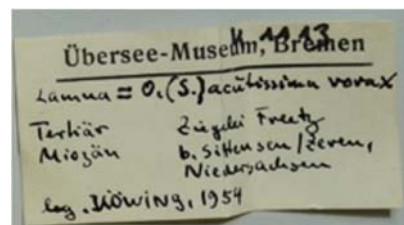 K 1113
Übersee-Museum, Bremen
Lamna = O.(S.) acutissima vorax
Tertiär Ziegelei Freetz
Miozän b. Sittensen/Zeven,
Niedersachsen
leg. 1954